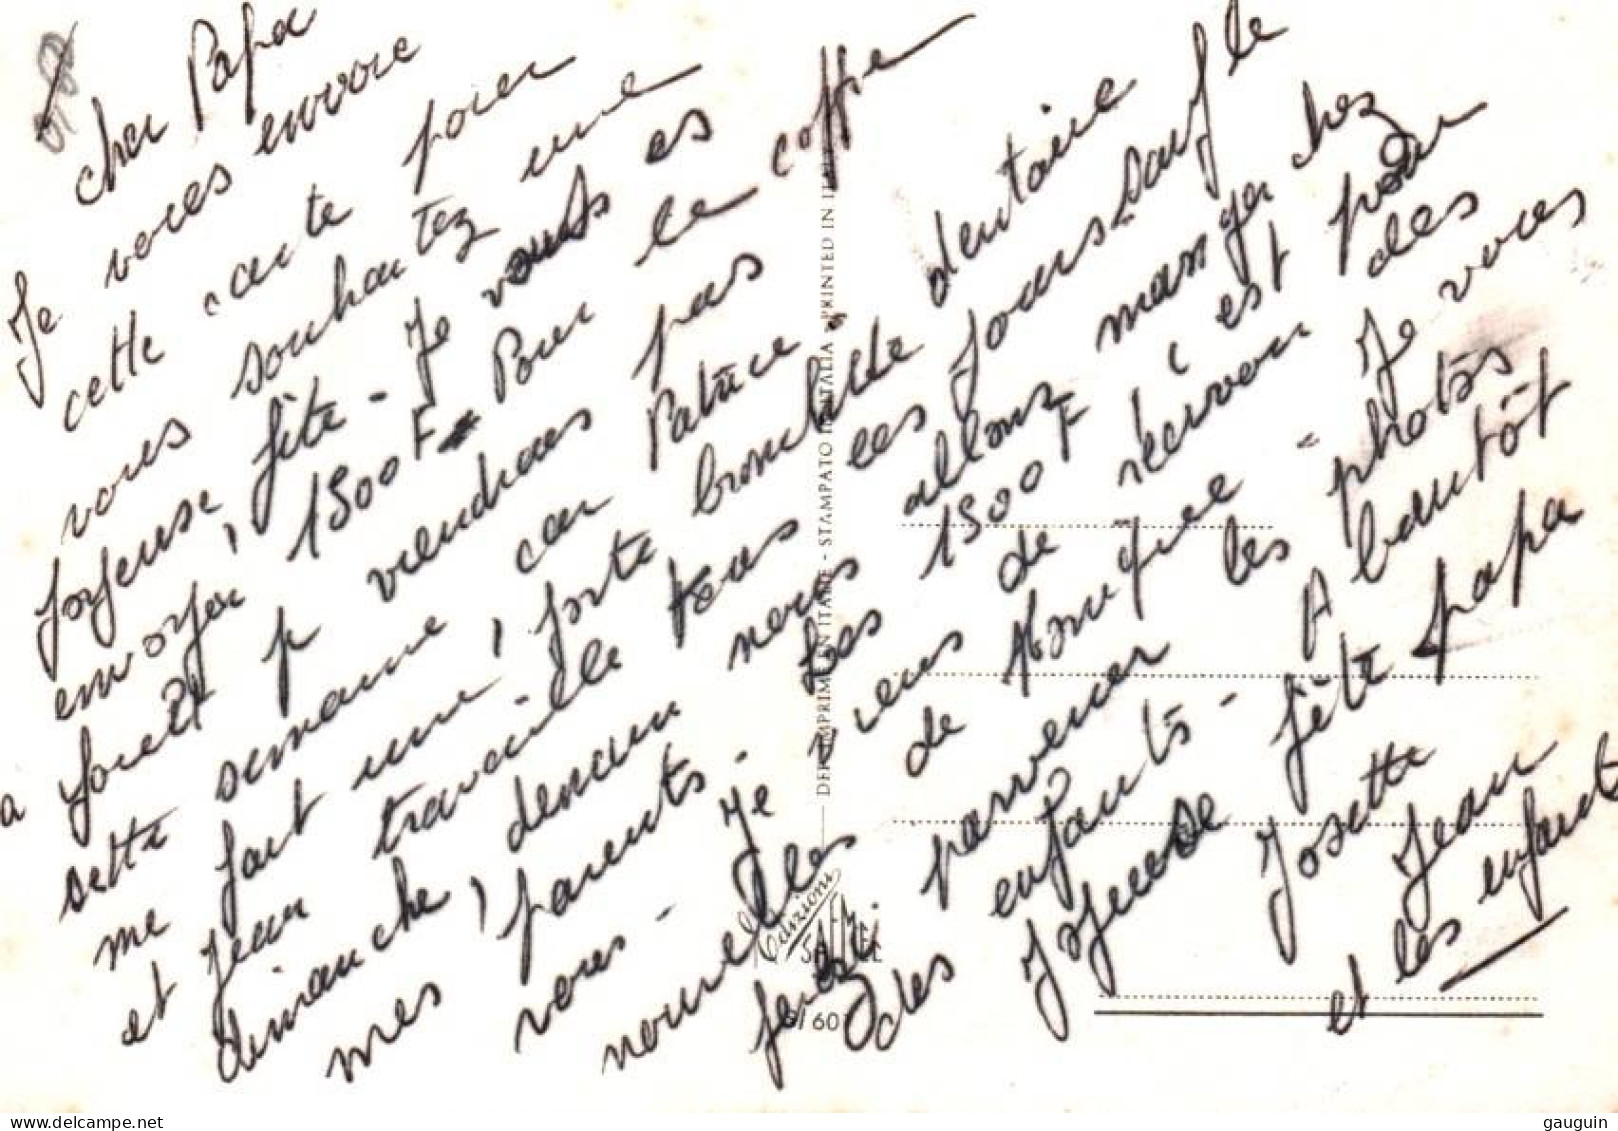 cher Papa
Je vous envoie
cette carte pour
vous souhaitez une
joyeuse fête - Je vous es
envoyer 1500F - Pour le coffre
a jouet pas
viendrons
cette semaine car Patrice
me fait une forte bronchite dentaire
et Jean travaille tous les jours - sauf le
dimanche, demain nous allons manger chez
mes parents - Les 1500F est pour
vous - Je viens de recevoir des
nouvelles de Monique - Je vous
ferez parvenir les photos
des enfants - A bientôt
Joyeuse fête papa
Josette
Jean
et les enfants
DEP. IMPRIME EN ITALIE - STAMPATO IN ITALIA - PRINTED IN ITALY
Edizioni
SAEMEC
60
gauguin